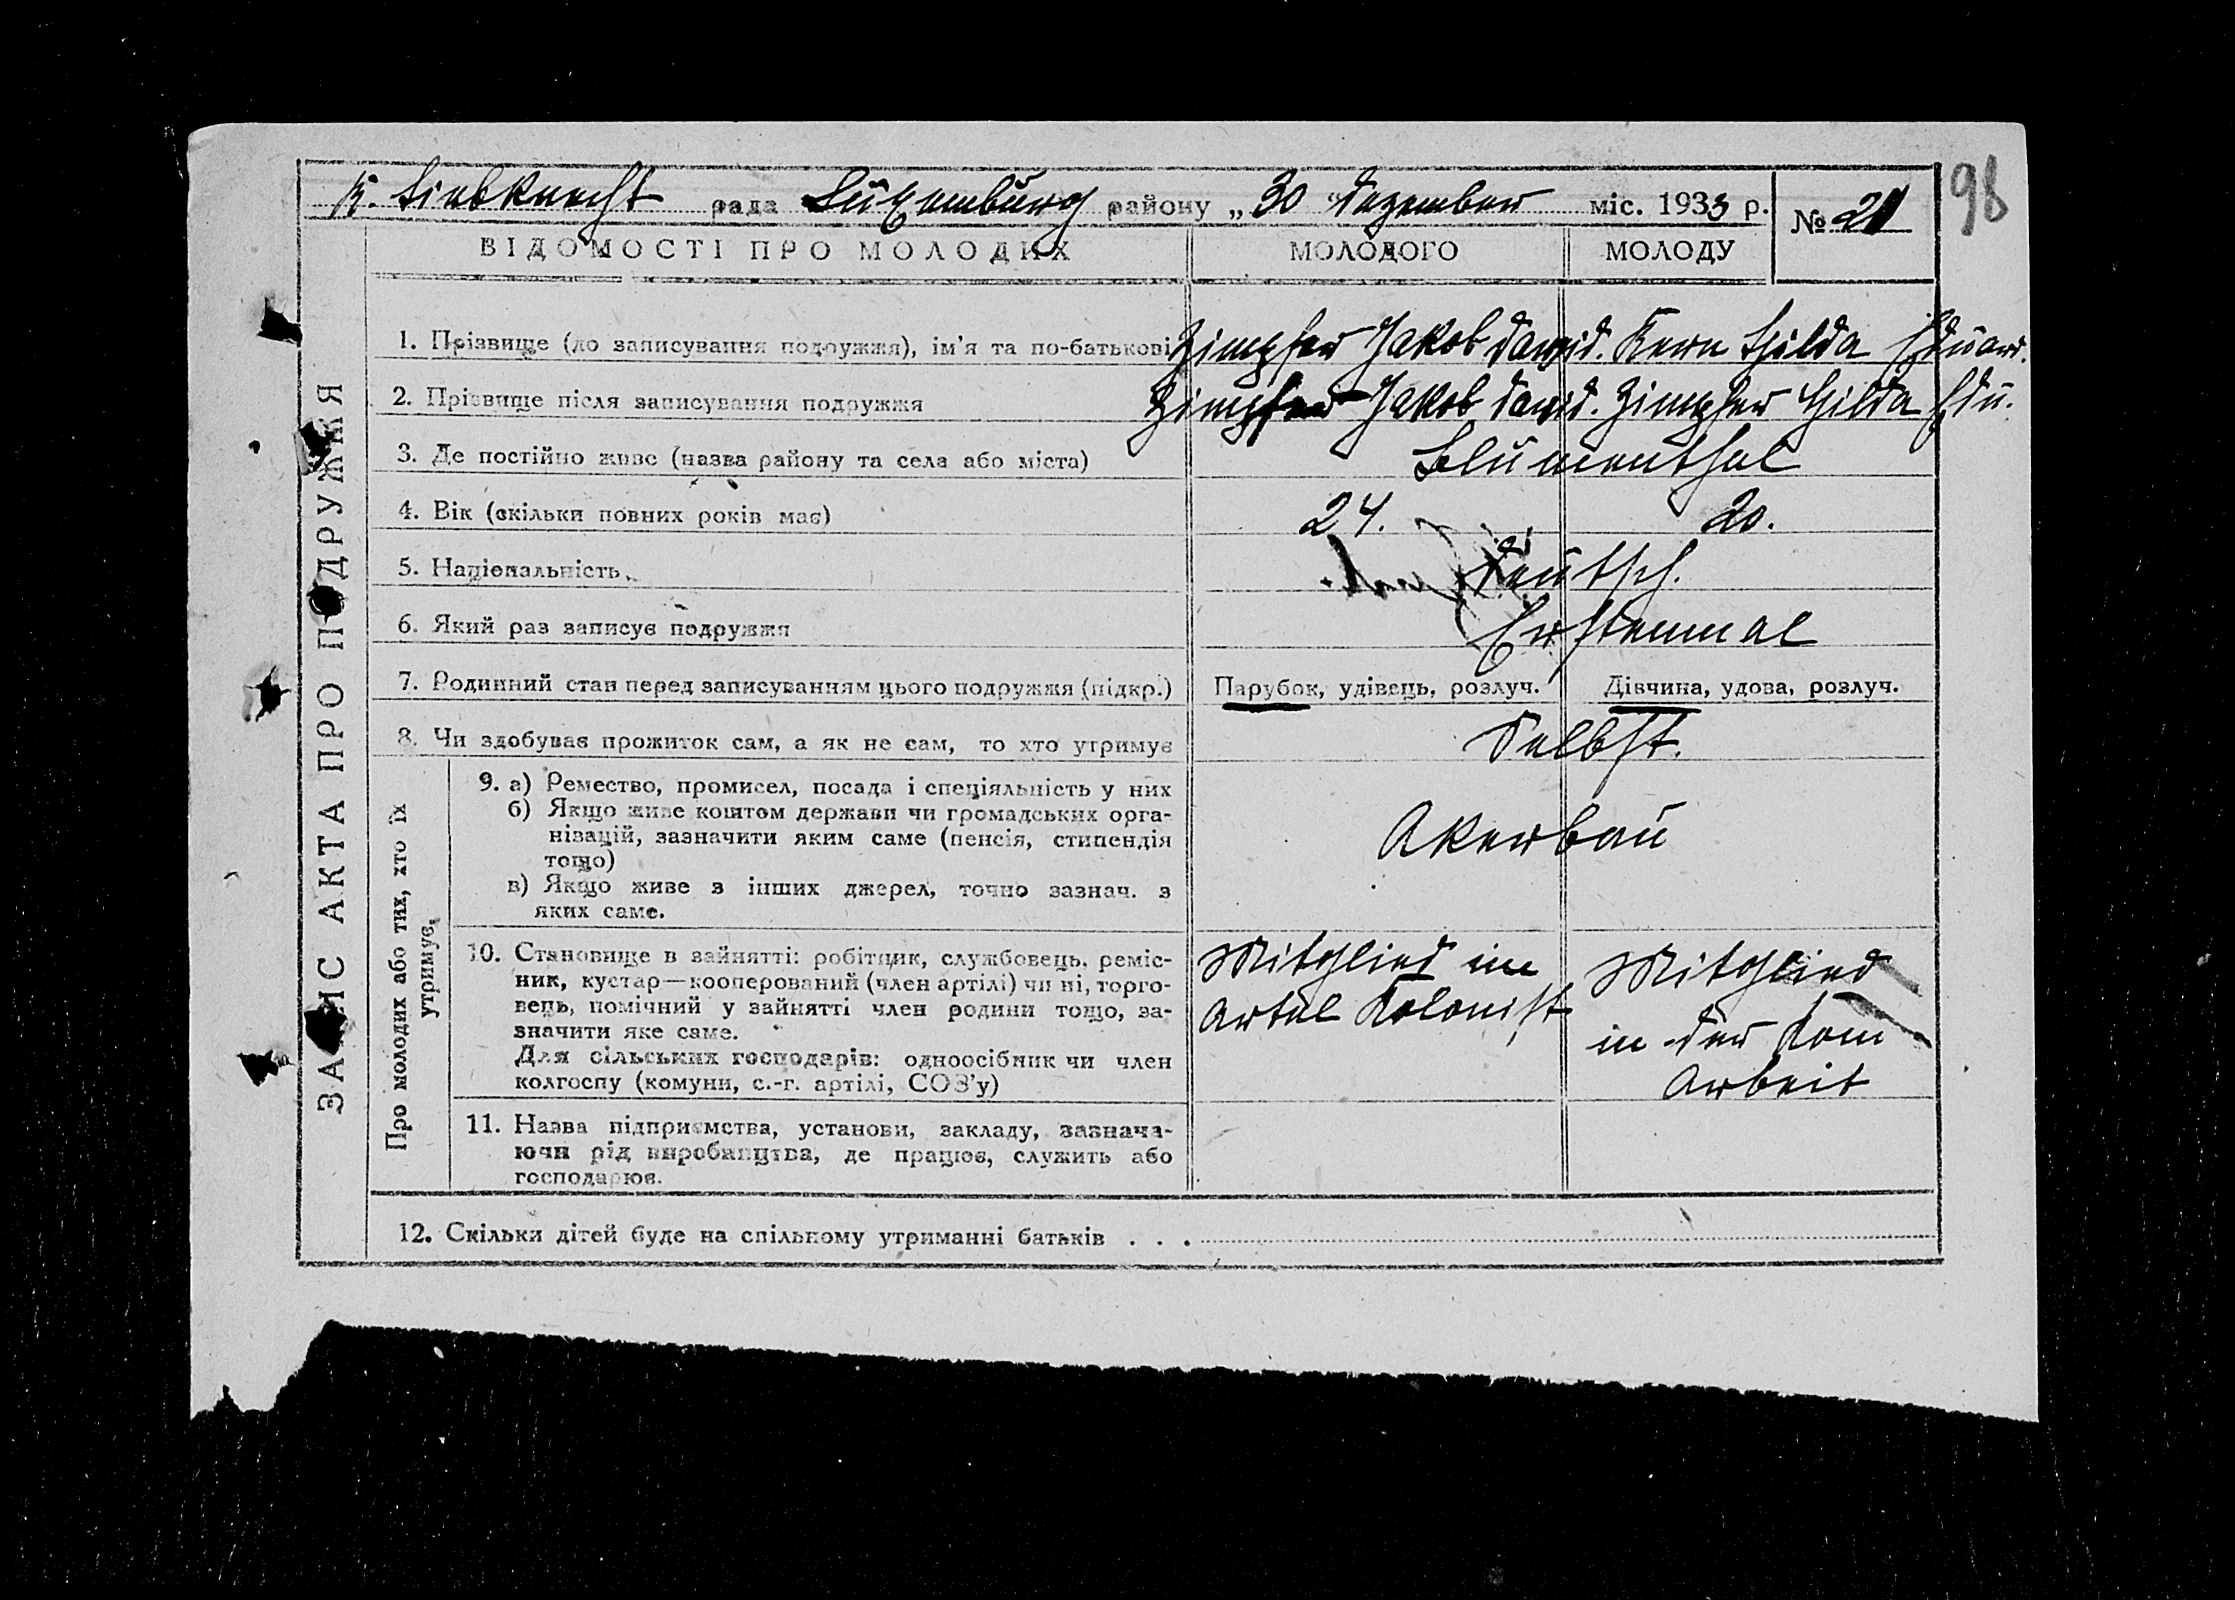 98
K. Liebknecht рада Lüxemburg району „ 30 " Dezember міс. 1933 р. № 21
ВІДОМОСТІ ПРО МОЛОДИХ МОЛОДОГО МОЛОДУ
ЗАПИС АКТА ПРО ПОДРУЖЖЯ
1. Прізвище (до записування подружжя), ім'я та по-батькові Zimpfer Jakob David. Kern Hilda Eduard.
2. Прізвище після записування подружжя Zimpfer Jakob David. Zimpfer Hilda Edu.
3. Де постійно живе (назва району та села або міста) Blümenthal
4. Вік (скільки повних років має) 24. 20.
5. Національність Deütsch.
6. Який раз записує подружжя Erstenmal
7. Родинний стан перед записуванням цього подружжя (підкр.) Парубок, удівець, розлуч. Дівчина, удова, розлуч.
8. Чи здобуває прожиток сам, а як не сам, то хто утримує Selbst.
Про молодих або тих, хто їх
утримує.
9. а) Ремество, промисел, посада і спеціяльність у них
б) Якщо живе коштом держави чи громадських орга-
нізацій, зазначити яким саме (пенсія, стипендія
тощо)
в) Якщо живе з інших джерел, точно зазнач. з
яких саме.
Akerbaü
10. Становище в зайнятті: робітник, службовець, реміс-
ник, кустар—кооперований (член артілі) чи ні, торго-
вець, помічний у зайнятті член родини тощо, за-
значити яке саме.
Для сільських господарів: одноосібник чи член
колгоспу (комуни, с.-г. артілі, СОЗ'у)
Mitglied im
Artel Kolonist
Mitglied
in der Kom
Arbeit
11. Назва підприємства, установи, закладу, зазнача-
ючи рід виробництва, де працює, служить або
господарює.
12. Скільки дітей буде на спільному утриманні батьків . . .